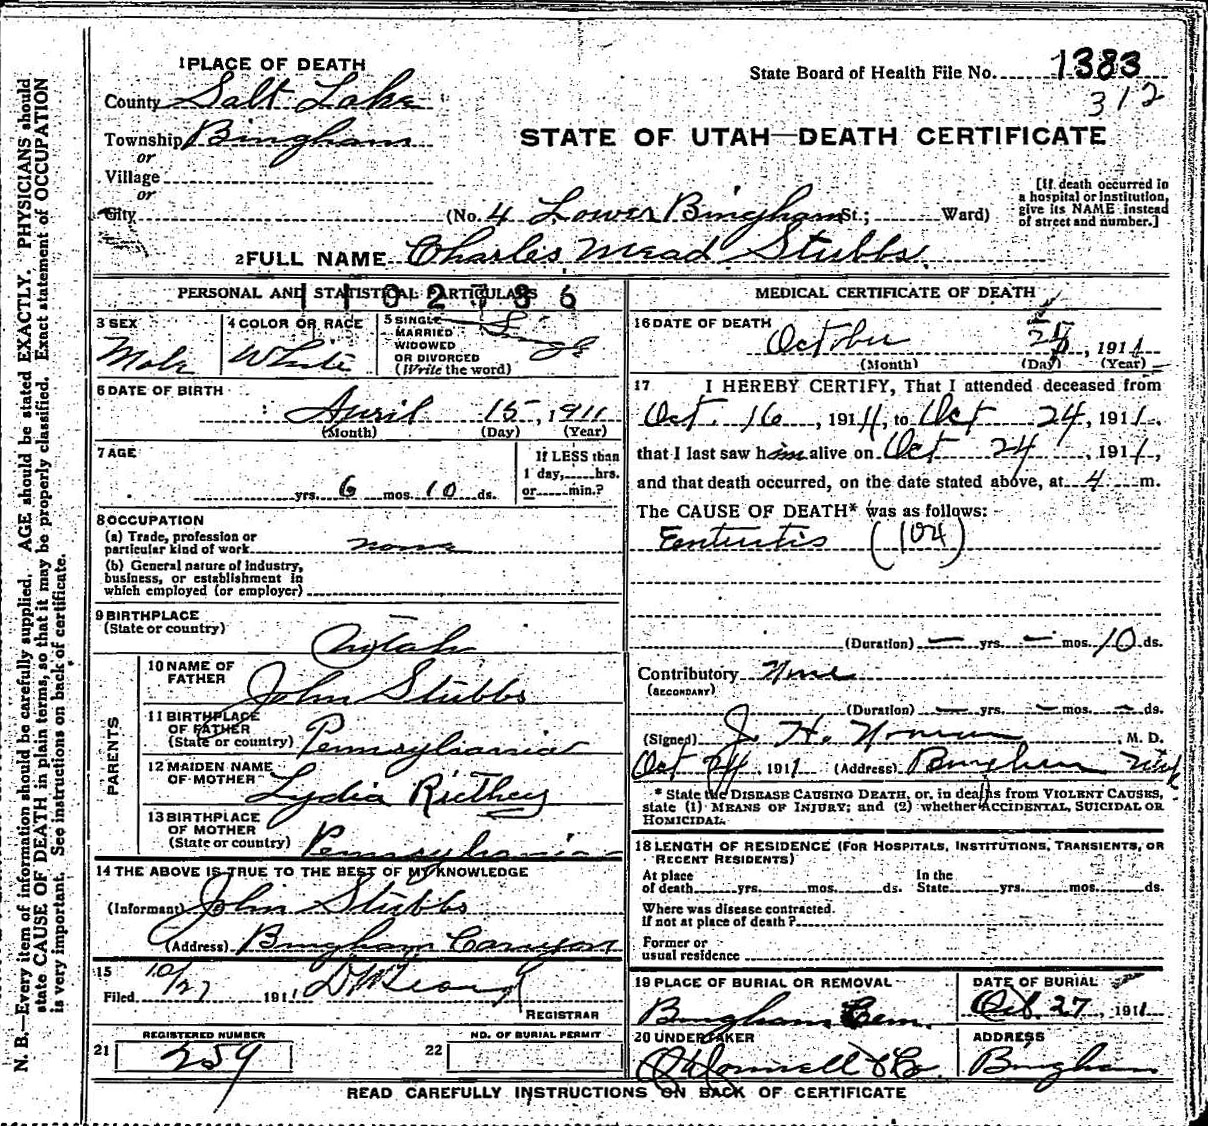 1 PLACE OF DEATH
State Board of Health File No. 1383
312
County Salt Lake
Township Bingham
or
Village
or
City
STATE OF UTAH—DEATH CERTIFICATE
(No. 4 Lower Bingham St.; Ward)
[If death occurred in
a hospital or institution,
give its NAME instead
of street and number.]
2 FULL NAME Charles Mead Stubbs
PERSONAL AND STATISTICAL PARTICULARS
3 SEX
Male
4 COLOR OR RACE
White
5 SINGLE
MARRIED
WIDOWED
OR DIVORCED
(Write the word)
6 DATE OF BIRTH
April 15, 1911
(Month) (Day) (Year)
7 AGE
yrs. 6 mos. 10 ds.
If LESS than
1 day, hrs.
or min.?
8 OCCUPATION
(a) Trade, profession or
particular kind of work none
(b) General nature of industry,
business, or establishment in
which employed (or employer)
9 BIRTHPLACE
(State or country)
Utah
PARENTS
10 NAME OF
FATHER
John Stubbs
11 BIRTHPLACE
OF FATHER
(State or country) Pennsylvania
12 MAIDEN NAME
OF MOTHER
Lydia Riethey
13 BIRTHPLACE
OF MOTHER
(State or country) Pennsylvania
14 THE ABOVE IS TRUE TO THE BEST OF MY KNOWLEDGE
(Informant) John Stubbs
(Address) Bingham Canyon
15
Filed 10/27 1911
REGISTRAR
REGISTERED NUMBER
21 259
NO. OF BURIAL PERMIT
22
MEDICAL CERTIFICATE OF DEATH
16 DATE OF DEATH
October , 1911
(Month) (Day) (Year)
17 I HEREBY CERTIFY, That I attended deceased from
Oct. 16, 1911, to Oct 24, 1911.
that I last saw him alive on Oct 24, 1911,
and that death occurred, on the date stated above, at 4 m.
The CAUSE OF DEATH* was as follows:
Enteritis (104)
(Duration) — yrs. — mos. 10 ds.
Contributory None
(SECONDARY)
(Duration) — yrs. — mos. — ds.
(Signed) J. H. , M. D.
Oct 24, 1911 (Address) Bingham Utah
* State the DISEASE CAUSING DEATH, or, in deaths from VIOLENT CAUSES,
state (1) MEANS OF INJURY; and (2) whether ACCIDENTAL, SUICIDAL OR
HOMICIDAL.
18 LENGTH OF RESIDENCE (FOR HOSPITALS, INSTITUTIONS, TRANSIENTS, OR
RECENT RESIDENTS)
At place
of death yrs. mos. ds.
In the
State yrs. mos. ds.
Where was disease contracted.
If not at place of death?
Former or
usual residence
19 PLACE OF BURIAL OR REMOVAL
Bingham Cem.
DATE OF BURIAL
Oct. 27, 1911
20 UNDERTAKER
O'Donnell & Co.
ADDRESS
Bingham
READ CAREFULLY INSTRUCTIONS ON BACK OF CERTIFICATE
N. B.—Every item of information should be carefully supplied. AGE should be stated EXACTLY. PHYSICIANS should
state CAUSE OF DEATH in plain terms, so that it may be properly classified. Exact statement of OCCUPATION
is very important. See instructions on back of certificate.